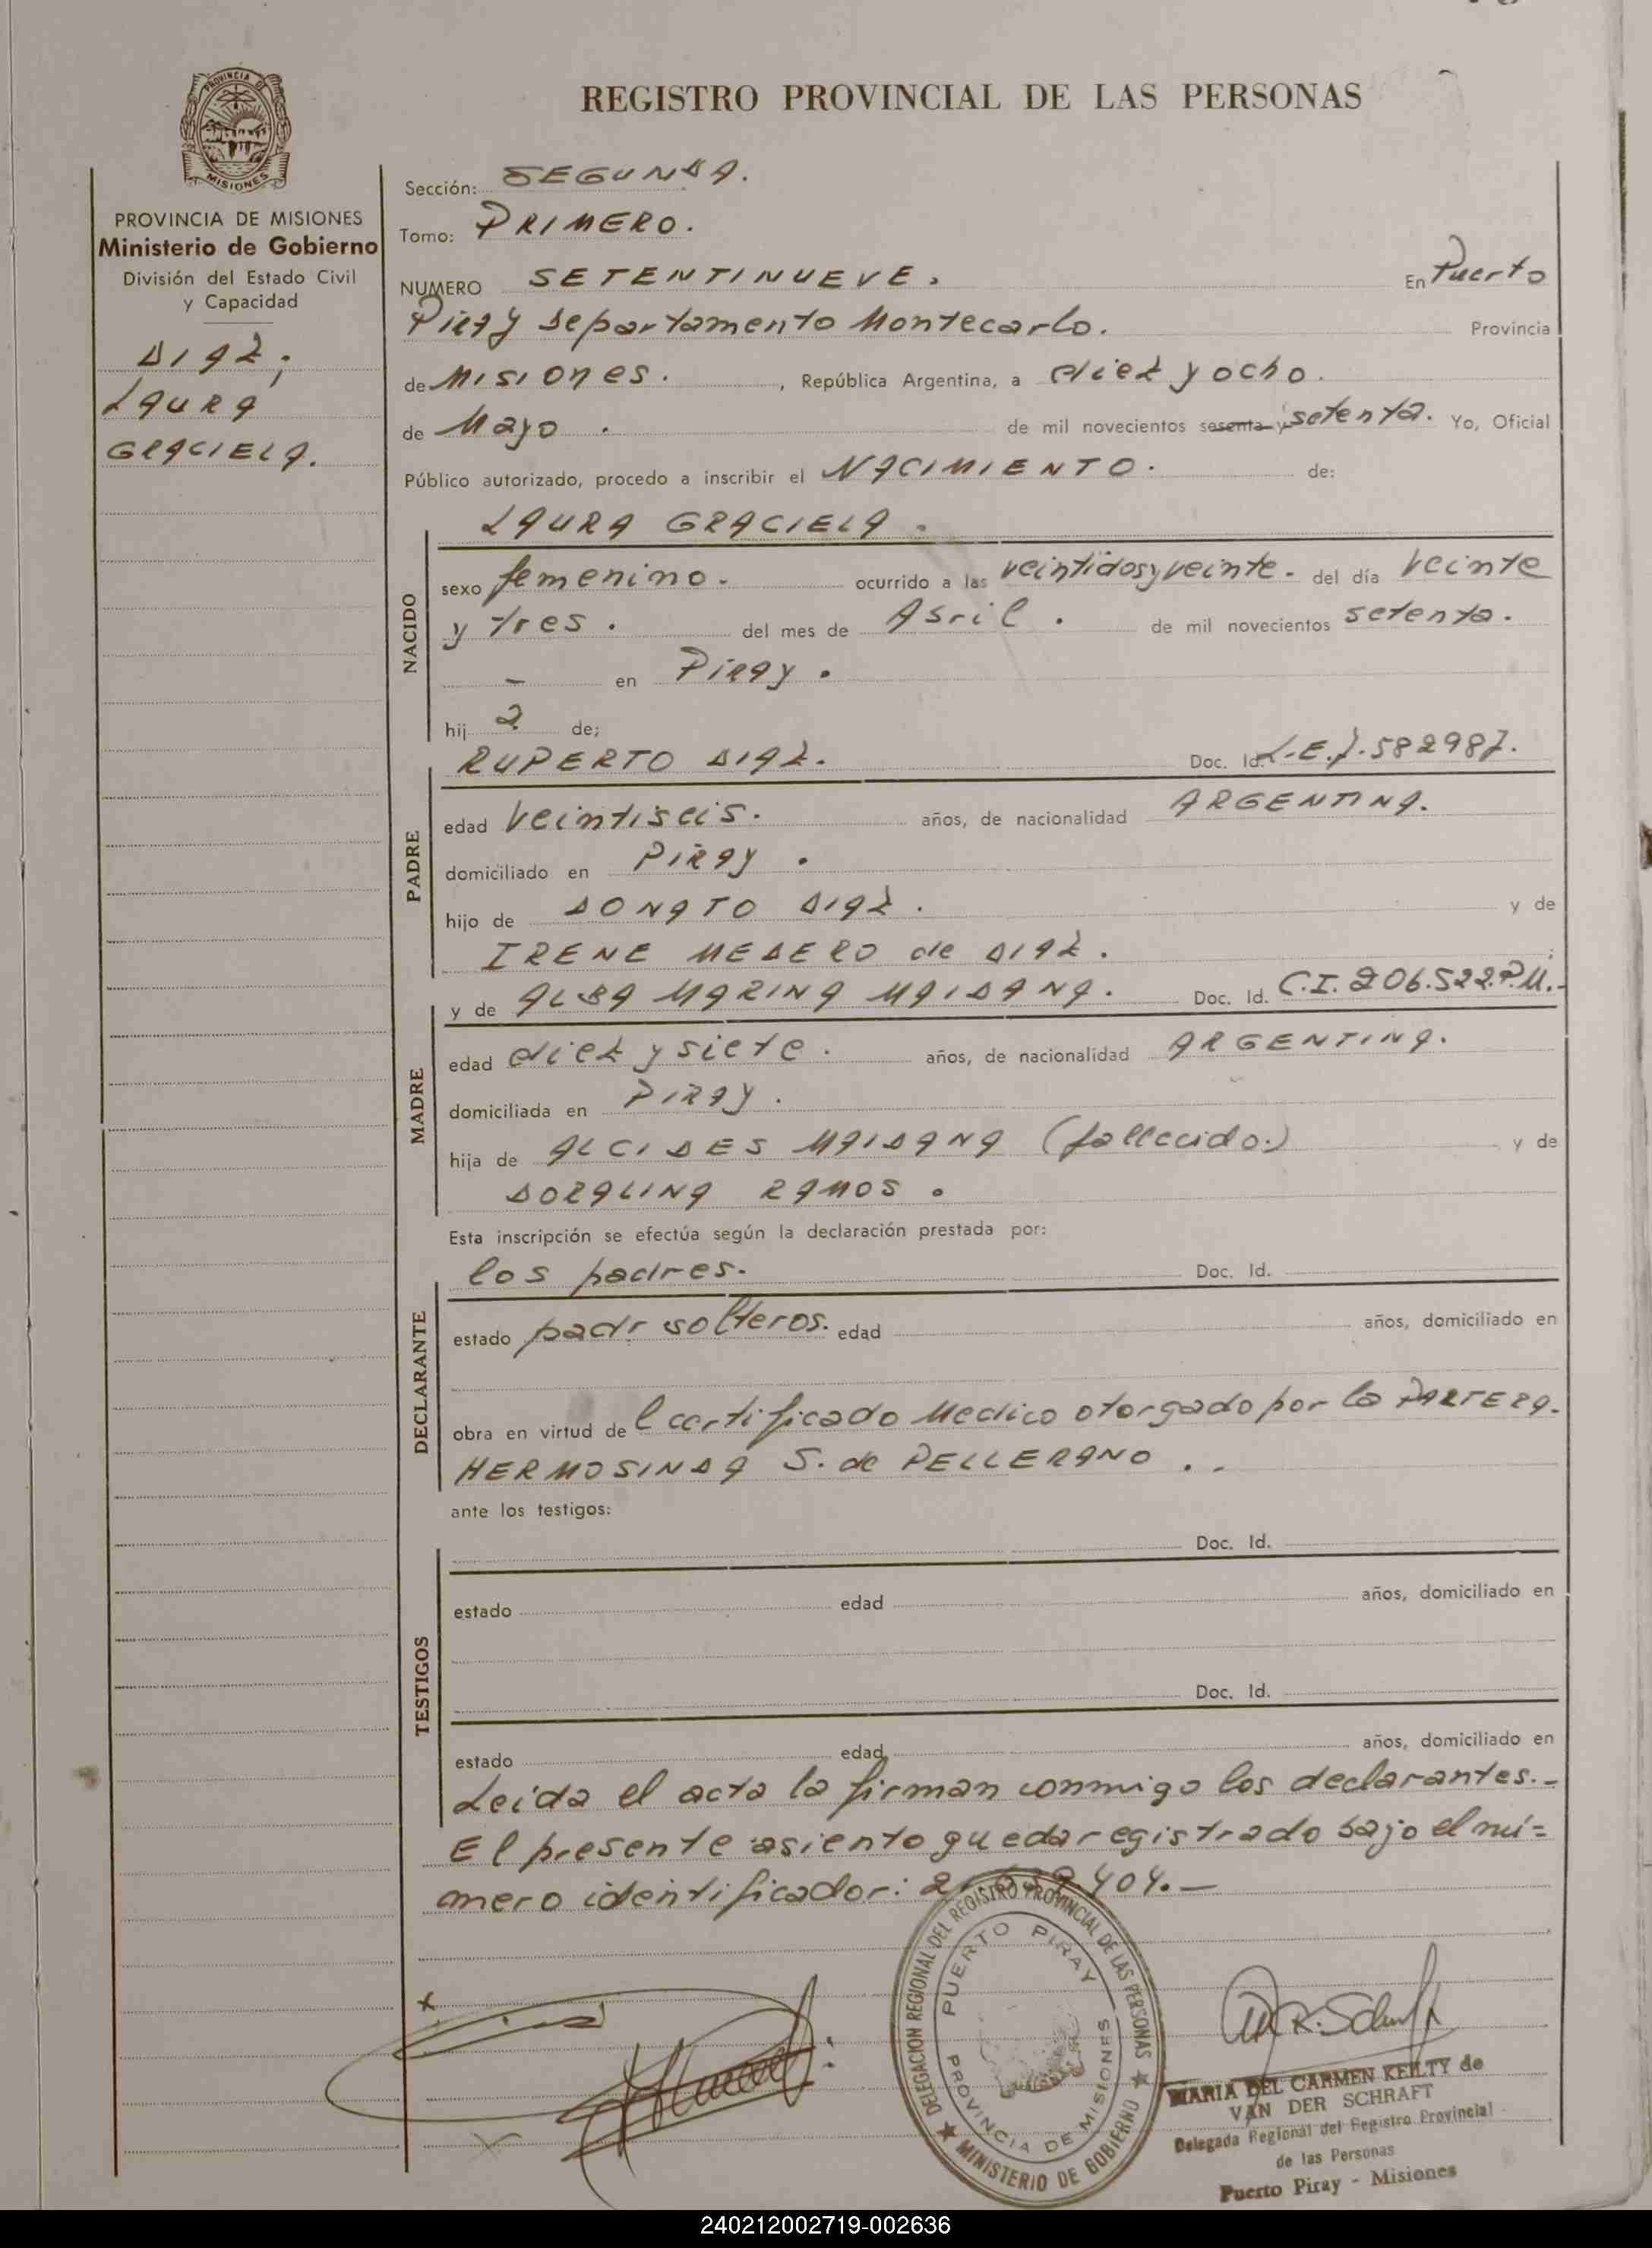 REGISTRO PROVINCIAL DE LAS PERSONAS
PROVINCIA DE
MISIONES
PROVINCIA DE MISIONES
Ministerio de Gobierno
División del Estado Civil
y Capacidad
DIAZ,
LAURA
GRACIELA.
Sección: SEGUNDA.
Tomo: PRIMERO.
NUMERO SETENTINUEVE. En Puerto
Piray Departamento Montecarlo. Provincia
de Misiones. , República Argentina, a diez y ocho.
de Mayo . de mil novecientos sesenta y setenta. Yo, Oficial
Público autorizado, procedo a inscribir el NACIMIENTO. de:
LAURA GRACIELA.
NACIDO
sexo femenino.- ocurrido a las veintidos y veinte.- del día veinte
y tres . del mes de Abril . de mil novecientos setenta.
- en Piray .
hij a de;
RUPERTO DIAZ. Doc. Id. L.E.7.582987.
PADRE
edad veintiseis. años, de nacionalidad ARGENTINA.
domiciliado en Piray .
hijo de DONATO DIAZ. y de
IRENE MEDERO de DIAZ. ;
y de ALBA MARINA MAIDANA. Doc. Id. C.I. 206.522.P.M.-
MADRE
edad diez y siete . años, de nacionalidad ARGENTINA.
domiciliada en PIRAY.
hija de ALCIDES MAIDANA (fallecido.) y de
DORALINA RAMOS .
Esta inscripción se efectúa según la declaración prestada por:
los padres. Doc. Id.
DECLARANTE
estado padr solteros. edad años, domiciliado en
obra en virtud de l certificado Medico otorgado por la PARTERA.
HERMOSINDA S. de PELLERANO . .
ante los testigos:
Doc. Id.
TESTIGOS
estado edad años, domiciliado en
Doc. Id.
estado edad años, domiciliado en
Leida el acta la firman conmigo los declarantes.-
El presente asiento queda registrado bajo el nú=
mero identificador: 404.—
DELEGACION REGIONAL DEL REGISTRO PROVINCIAL DE LAS PERSONAS
MINISTERIO DE GOBIERNO
PUERTO PIRAY
PROVINCIA DE MISIONES
MARIA DEL CARMEN KEILTY de
VAN DER SCHRAFT
Delegada Regional del Registro Provincial
de las Personas
Puerto Piray - Misiones
240212002719-002636